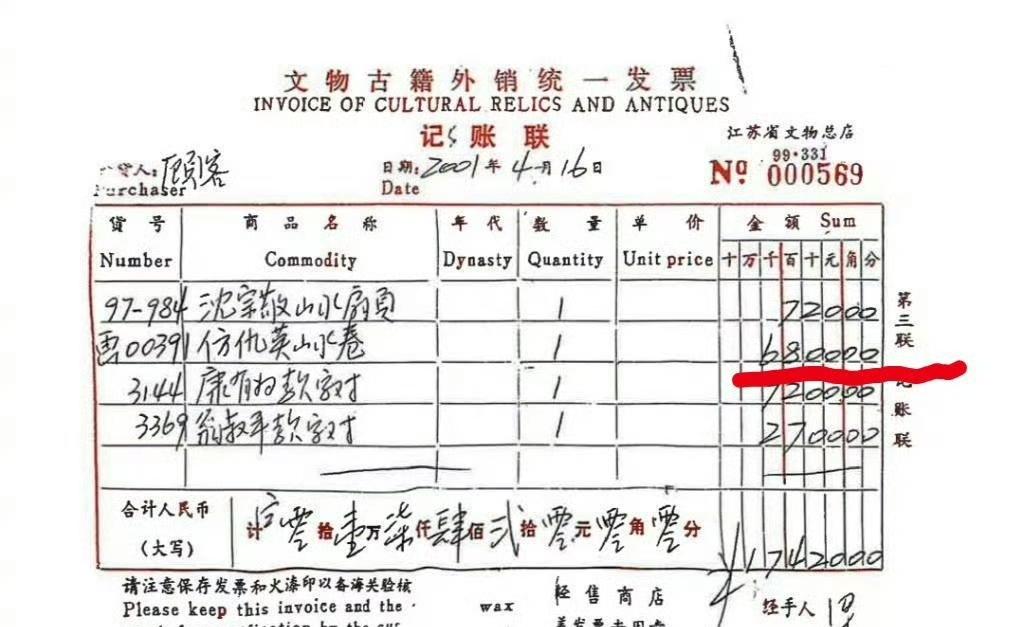 文物古籍外销统一发票
INVOICE OF CULTURAL RELICS AND ANTIQUES
记账联
江苏省文物总店
货人: 顾客
Purchaser
日期: 2001年4月16日
Date
99·331
Nº 000569
货号 商品名称 年代 数量 单价 金额 Sum
Number Commodity Dynasty Quantity Unit price 十万千百十元角分
97-984 沈宗敬山水扇页 1 72000
画00391 仿仇英山水卷 1 680000
3144 康有为款字对 1 720000
3369 翁叔平款字对 1 270000
第三联 记账联
合计人民币
(大写)
计 零拾壹万柒仟肆佰贰拾零元零角零分 ¥1742000
请注意保存发票和火漆印以备海关验核
Please keep this invoice and the wax
经售商店
经手人